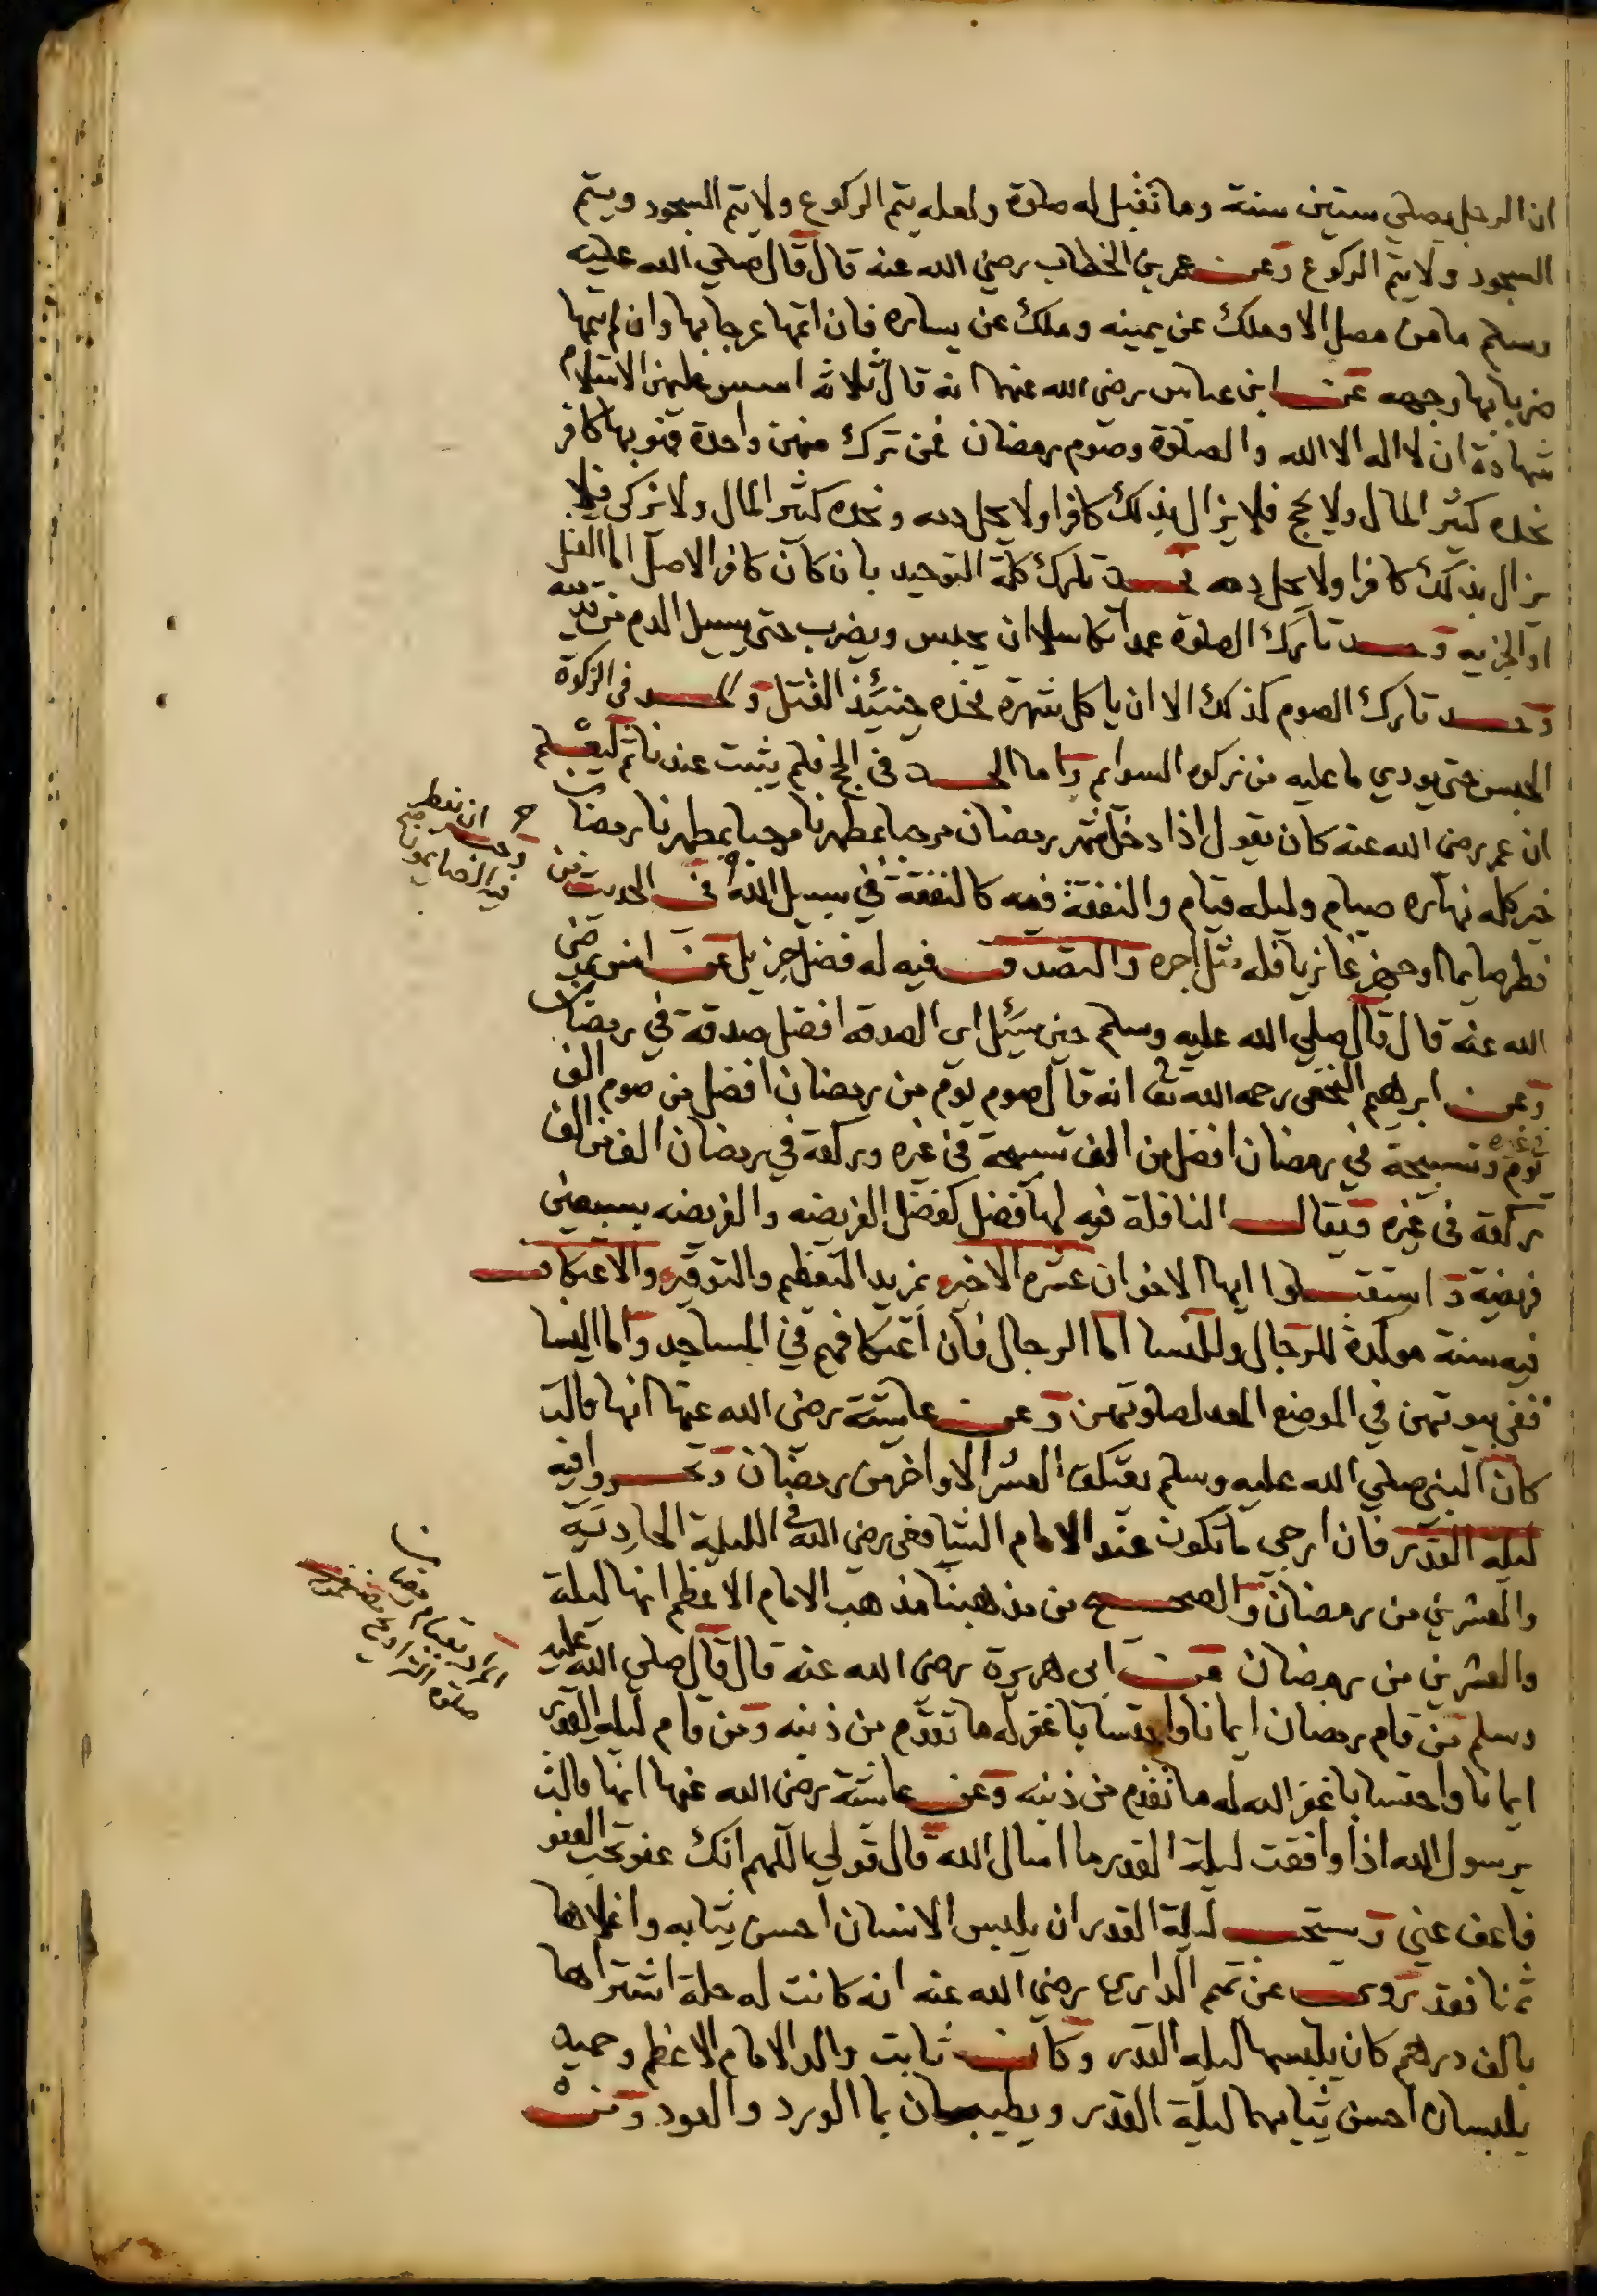 ان الرجل يصلي ستين سنة وما تقبل له صلوة ولعله يتم الركوع ولا يتم السجود ويتم
السجود ولا يتم الركوع وعن عمر بن الخطاب رضي الله عنه قال قال صلي الله عليه
وسلم ما من مصل الا وملك عن يمينه وملك عن يساره فان اتمها عرجا بها وان لم يتمها
ضربا بها وجهه عن ابن عباس رضى الله عنهما انه قال ثلاثه اسس عليهن الاسلام
شهادة ان لا اله الا الله والصلوة وصوم رمضان فمن ترك منهن واحدة فهو بها كافر
تجده كثير المال ولا يحج فلا يزال بذلك كافرا ولا يحل دمه وتجده كثير المال ولا يزكى فلا
يزال بذلك كافرا ولا يحل دمه فحد تارك كلمة التوحيد بان كان كافر الاصل اما القتل
او الجزيه وحد تارك الصلوة عمدا تكاسلا ان يحبس ويضرب حتى يسيل الدم من
وحد تارك الصوم كذلك الا ان ياكل شهرة فحده حينئذ القتل والحد فى الزكوة
الحبس حتى يودي ما عليه من زكوه السوايم واما الحد فى الحج فلم يثبت عندنا ثم ليعلم
ان عمر رضى الله عنه كان يقول اذا دخل شهر رمضان مرحبا بمطهرنا مرحبا بمطهرنا رمضان
خير كله نهاره صيام وليله قيام والنفقة فيه كالنفقة في سبيل الله فى الحديث من
فطر صايما او جهز غازيا فله مثل اجره والتصدق فيه له فضل جزيل عن انس رضى
الله عنه قال قال صلي الله عليه وسلم حين سئل اى الصدقه افضل صدقة في رمضان
وعن ابرهيم النخعى رحمه الله تعا انه قال صوم يوم من رمضان افضل من صوم الف
يوم وتسبيحة في رمضان افضل من الف تسبيحة فى غيره وركعة في رمضان افضل من الف
ركعة فى غيره ويقال النافلة فيه لها فضل كفضل الفريضه والفريضه بسبعين
فريضة واستقبلوا ايها الاخوان عشره الاخير بمزيد التعظيم والتوقير والاعتكاف
فيه سنة موكدة للرجال وللنسا اما الرجال فان اعتكافهم في المساجد واما النسا
ففى بيوتهن في الموضع المعد لصلوتهن وعن عايشة رضى الله عنها انها قالت
كان النبى صلي الله عليه وسلم يعتكف العشر الاواخر من رمضان وتحروا فيه
ليله القدر فان ارجى ما تكون عند الامام الشافعى رضى الله فى الليلة الحادية
والعشرين من رمضان والصحيح من مذهبنا مذهب الامام الاعظم انها ليلة
والعشرين من رمضان عن ابى هريرة رضى الله عنه قال قال صلي الله عليه
وسلم من قام رمضان ايمانا واحتسابا غفر له ما تقدم من ذنبه ومن قام ليله القدر
ايمانا واحتسابا غفر الله له ما تقدم من ذنبه وعن عايشة رضى الله عنها انها قالت
يرسول الله اذا وافقت ليلة القدر ما اسال الله قال قولي اللهم انك عفو تحب العفو
فاعف عني ويستحب ليلة القدر ان يلبس الانسان احسن ثيابه واغلاها
ثمنا فقد روى عن تميم الدارى رضي الله عنه انه كانت له حلة اشتراها
بالف درهم كان يلبسها ليله القدر وكان ثابت والد الامام الاعظم وحميد
يلبسان احسن ثيابهما ليلة القدر ويطيبان بما الورد والعود ومن
المراد بقيام رمضان
صلوة التراويح